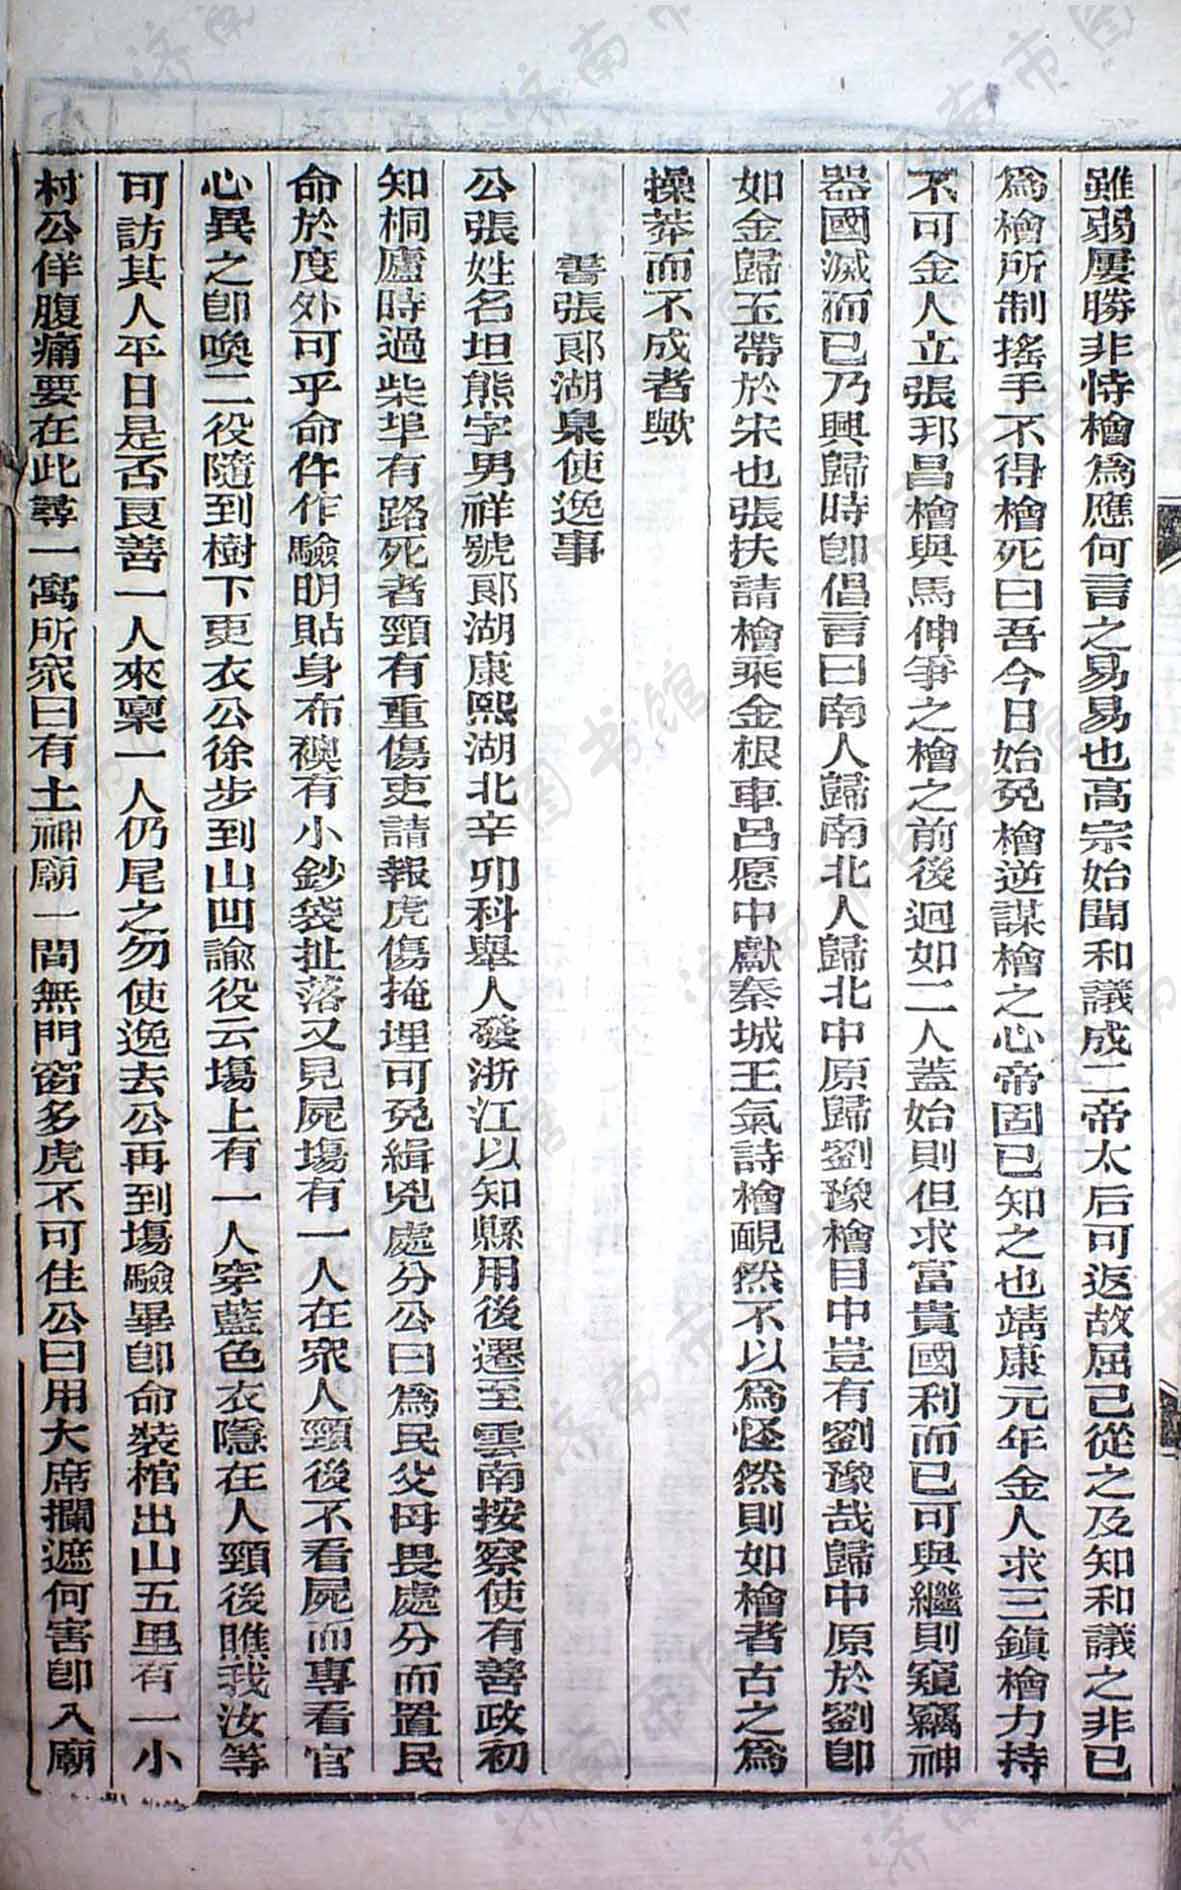 雖弱屢勝非恃檜爲應何言之易易也高宗始聞和議成二帝太后可返故屈己從之及知和議之非已
爲檜所制搖手不得檜死曰吾今日始免檜逆謀檜之心帝固已知之也靖康元年金人求三鎮檜力持
不可金人立張邦昌檜與馬伸爭之檜之前後迴如二人蓋始則但求富貴國利而已可與繼則窺竊神
器國滅而已乃興歸時卽倡言曰南人歸南北人歸北中原歸劉豫檜目中豈有劉豫哉歸中原於劉卽
如金歸玉帶於宋也張扶請檜乘金根車呂愿中獻秦城王氣詩檜靦然不以爲怪然則如檜者古之爲
操莽而不成者歟
書張郎湖臬使逸事
公張姓名坦熊字男祥號郎湖康熙湖北辛卯科舉人發浙江以知縣用後遷至雲南按察使有善政初
知桐廬時過柴埠有路死者頸有重傷吏請報虎傷掩埋可免緝兇處分公曰爲民父母畏處分而置民
命於度外可乎命仵作驗明貼身布襖有小鈔袋扯落又見屍塲有一人在眾人頸後不看屍而專看官
心異之卽喚二役隨到樹下更衣公徐步到山凹諭役云塲上有一人穿藍色衣隱在人頸後瞧我汝等
可訪其人平日是否良善一人來稟一人仍尾之勿使逸去公再到塲驗畢卽命裝棺出山五里有一小
村公佯腹痛要在此尋一寓所眾曰有土神廟一間無門窗多虎不可住公曰用大席攔遮何害卽入廟
济南市图书馆